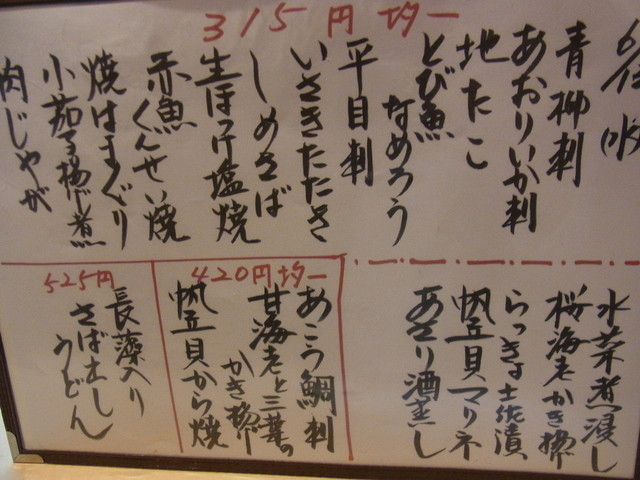 315円均一
青柳刺
あおりいか刺
地たこ
とび魚
なめろう
平目刺
いさきたたき
しめさば
生ほっけ塩焼
赤魚くんせい焼
焼はまぐり
小茄子揚げ煮
肉じゃが
水菜煮浸し
桜海老かき揚げ
らっきょ土佐漬
帆立貝マリネ
あさり酒蒸し
420円均一
あこう鯛刺
甘海老と三葉の
かき揚げ
帆立貝から焼
525円
長藻入り
さばだし
うどん